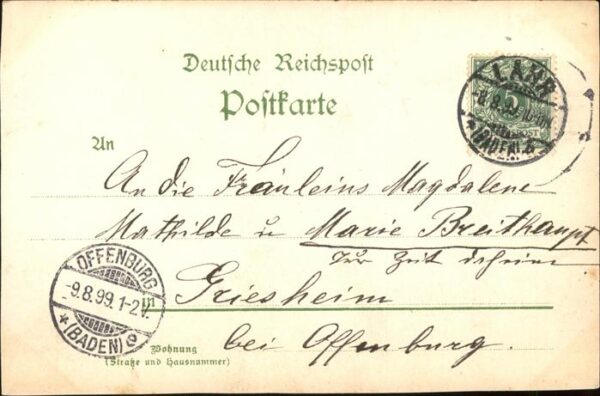 Deutsche Reichspost
Postkarte
LAHR
8.8.99.
(BADEN)
5
POST
An
An die Fräuleins Magdalene
Mathilde u Marie Breithaupt
zur Zeit
in Griesheim
bei Offenburg.
OFFENBURG
-9.8.99.1-2V.
(BADEN)
Wohnung
(Straße und Hausnummer)